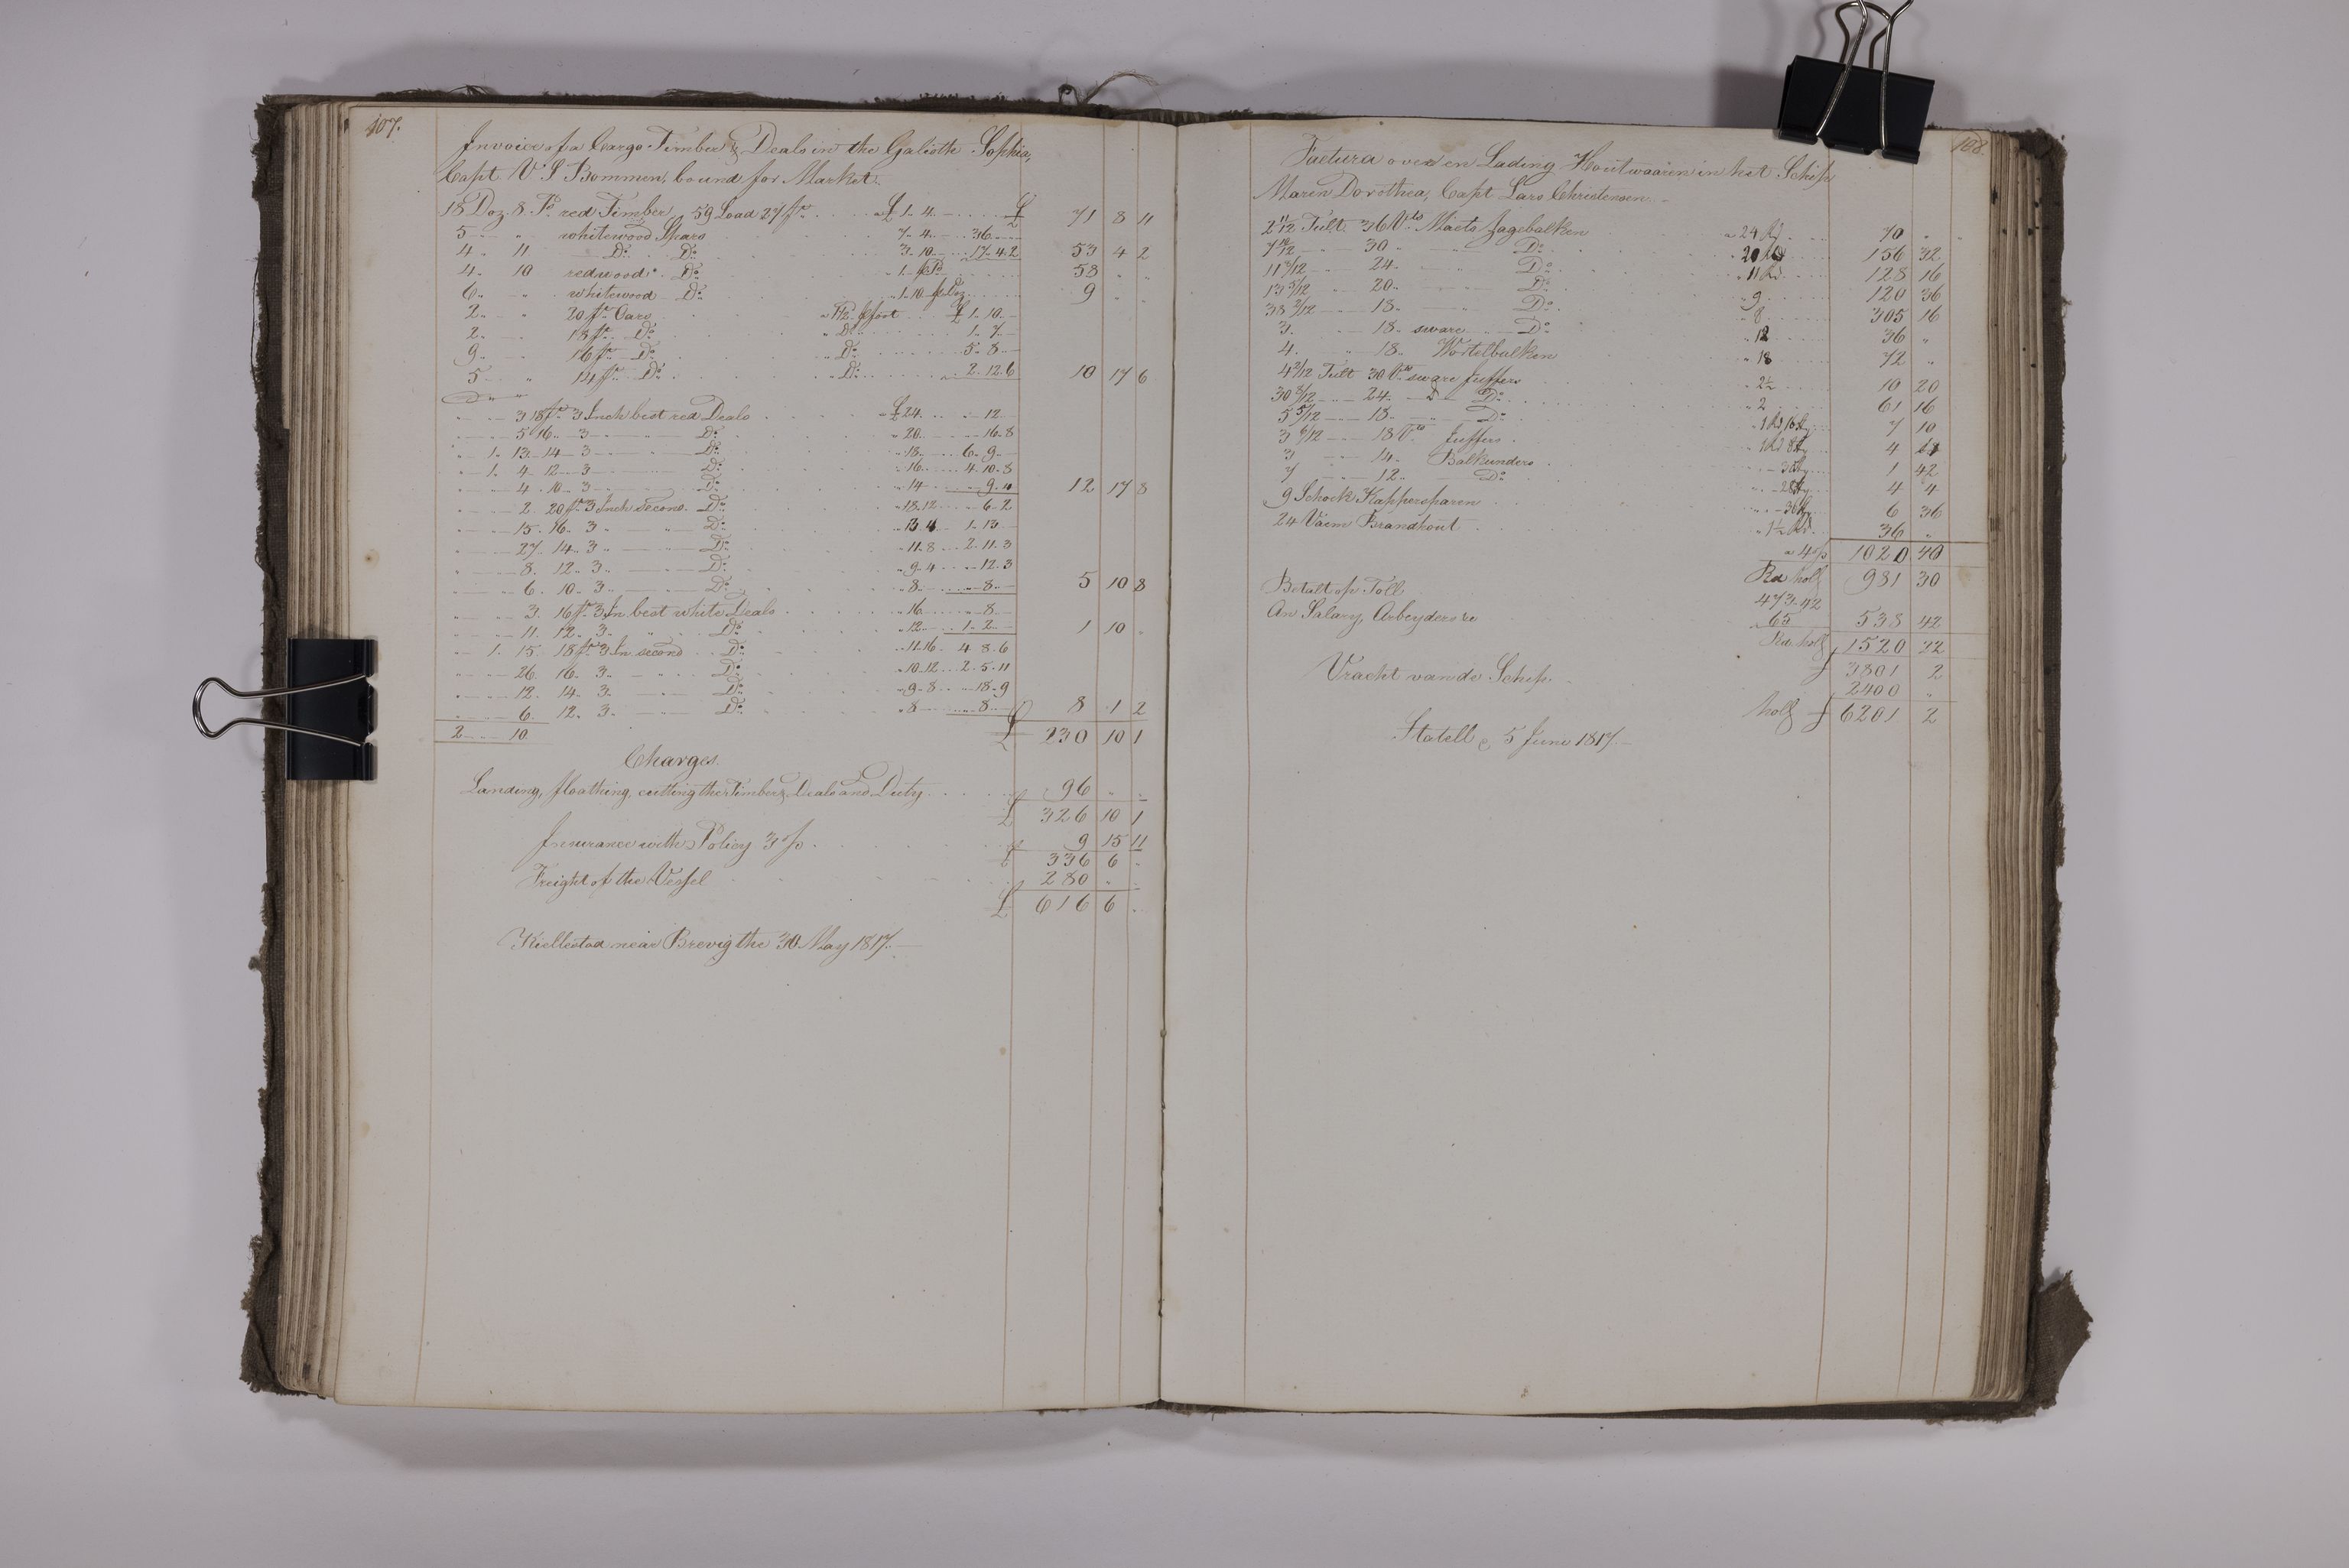 107.
Invoice of a Cargo Timber & Deals in the Galioth Sophia,
Capt V S Bommen, bound for Market.
18 Doz 8 Ps red Timber, 59 Load 27 ft a £ 1. 4 £ 71 8 11
5 " whitewood Spars 7. 4 36
4 11 Do Do 3. 10 17. 4. 2 53 4 2
4. 10 redwood Do 1. 58 " "
6 " whitewood Do 1. 10 Doz 9 " "
2 " 20 ft Oars a 1 1/2 foot £ 1. 10
2 " 18 ft Do " Do 1. 7
9 " 16 ft Do " Do 5. 8
5 " 14 ft Do " Do 2. 12. 6 10 17 6
3 18 ft 3 Inch best red Deals a £ 24 12
5 16 3 Do " 20 16. 8
1. 13 14 3 Do " 18 6. 9
1. 4 12 3 Do " 16 4. 10. 8
4. 10. 3 Do " 14 9. 4 12 17 8
2. 20 ft 3 Inch second Do " 18. 12 6. 2
15. 16. 3 Do " 13 4 1. 13
27. 14. 3 Do " 11. 8 2. 11. 3
8. 12. 3 Do " 9. 4 12. 3
6. 10. 3 Do " 8 8 5 10 8
3. 16 ft 3 In best white Deals " 16 8
11. 12. 3 Do " 12 1. 2 1 10 "
1. 15. 18 ft 3 In second Do " 11. 16 4 8. 6
26. 16. 3 Do " 10. 12 2. 5. 11
12. 14. 3 Do " 9. 8 18. 9
6. 12. 3. Do " 8 8 8 1 2
2 10 £ 230 10 1
Charges.
Landing, floathing, cutting the Timber & Deals and Duty 96 " "
£ 326 10 1
Insurance with Policy 3 % 9 15 11
£ 336 6 "
Freight of the Vessel 280 " "
£ 616 6 "
Kiellestad near Brevig the 30 May 1817.
108.
Factura over en Lading Houtwaaren in het Schip
Maren Dorothea, Capt Lars Christensen.
2 11/12 Tult 36 Vts Maets Sagebalken a 24 Rd 70 "
7 10/12 30 Do 20 Rd 156 32
11 8/12 24 Do " 11 Rd 128 16
13 5/12 20 Do " 9 120 36
38 2/12 18 Do " 8 305 16
3. 18 sware Do " 12 36 "
4. 18. Wortelbalken " 18 72 "
4 2/12 Tult 30 Vts sware Juffers " 2 1/2 10 20
30 8/12 24 Do " 2 61 16
5 5/12 18 Do 7 10
3 6/12 18 Vts Juffers 4
3 14 Balkunders 1 42
7 12 Do 4 4
9 Schock Kappersparen 6 36
24 Väem Brandhout " 1 1/2 Rd 36 "
a 4 % 1020 40
Rd holl 981 30
Betalt op Toll 473. 42
An Salary, Arbeyders &c 65 538 42
Rd holl 1520 22
f 3801 2
Vracht van de Schip 2400 "
holl f 6201 2
Statell e 5 Juni 1817.